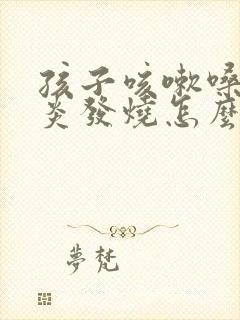 孩子咳嗽嗓
炎發燒怎麼
夢梵